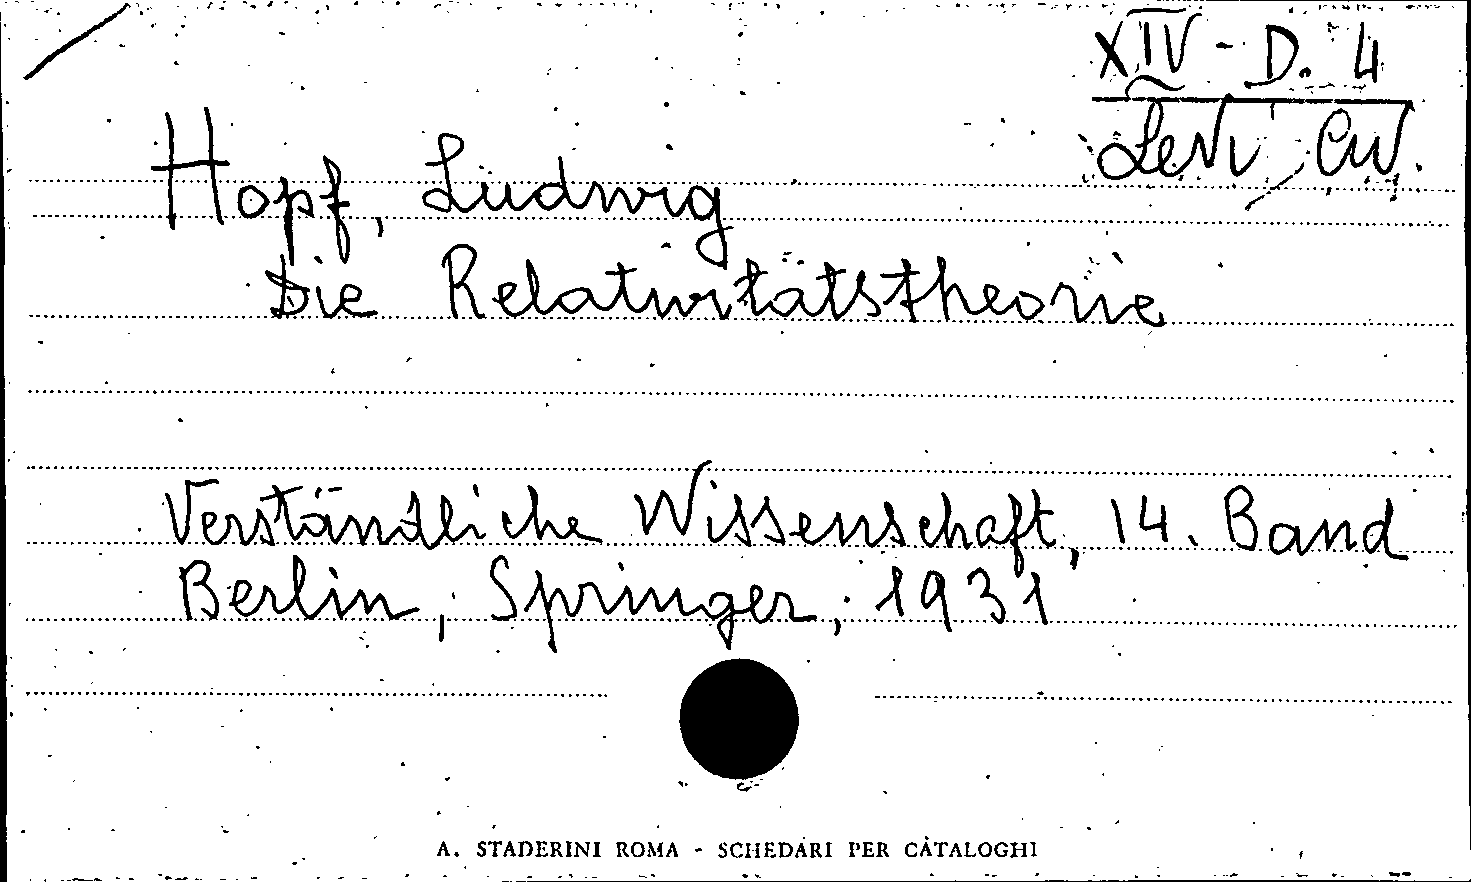 XIV - D. 4
Levi Civ.
Hopf, Ludwig
Die Relativitätstheorie
Verständliche Wissenschaft, 14. Band
Berlin, Springer, 1931
A. STADERINI ROMA - SCHEDARI PER CATALOGHI